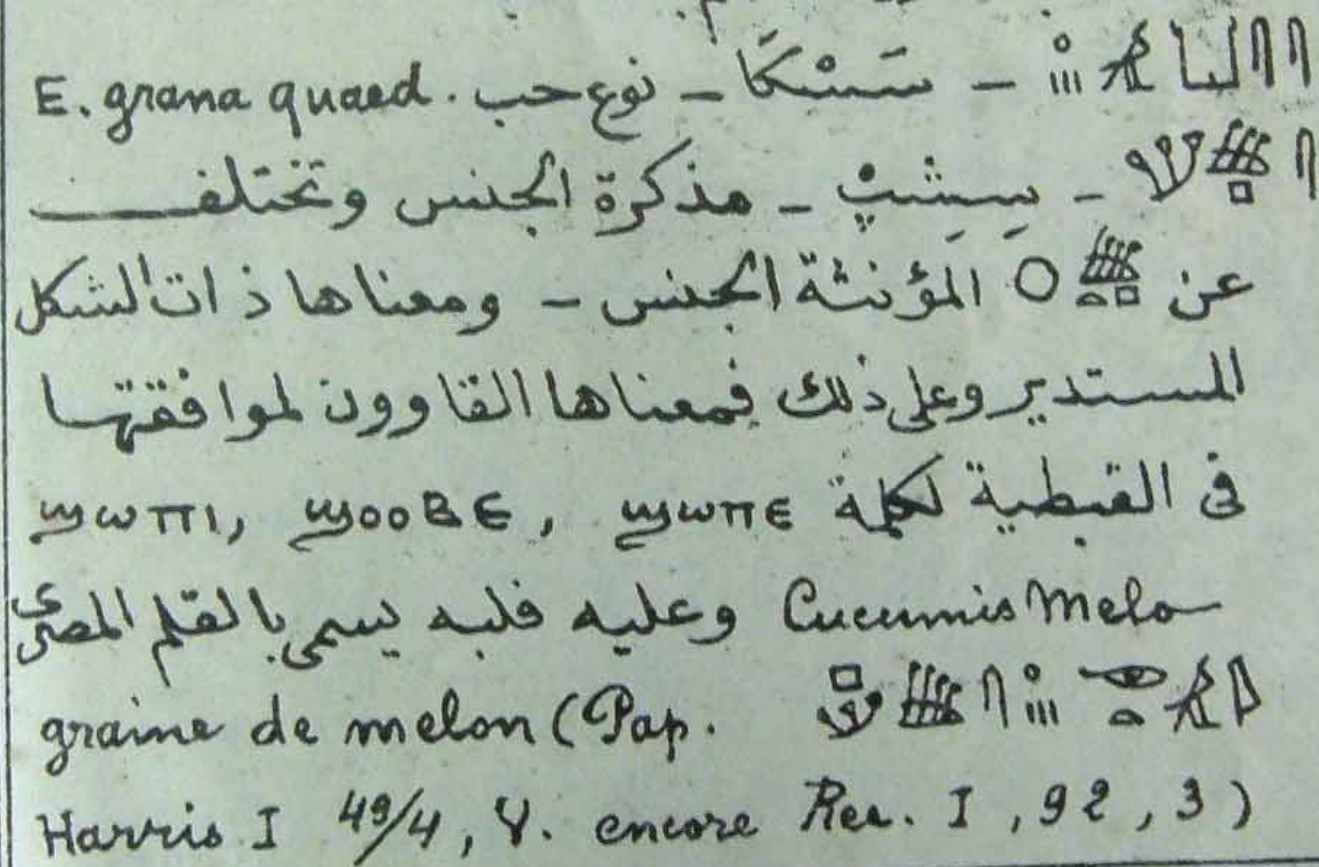 – سَسْكَا – نوع حب . E. grana quaed
– سِشِپْ – مذكرة الجنس وتختلف
عن المؤنثة الجنس – ومعناها ذات الشكل
المستدير وعلى ذلك فمعناها القاوون لموافقتها
فى القبطية لكلمة ϣⲱⲡⲉ , ϣⲟⲟⲃⲉ , ϣⲱⲡⲓ
Cucumis Melo وعليه فلبه يسمى بالقلم المصرى
graine de melon (Pap.
Harris I 49/4, V. encore Rec. I , 92 , 3)